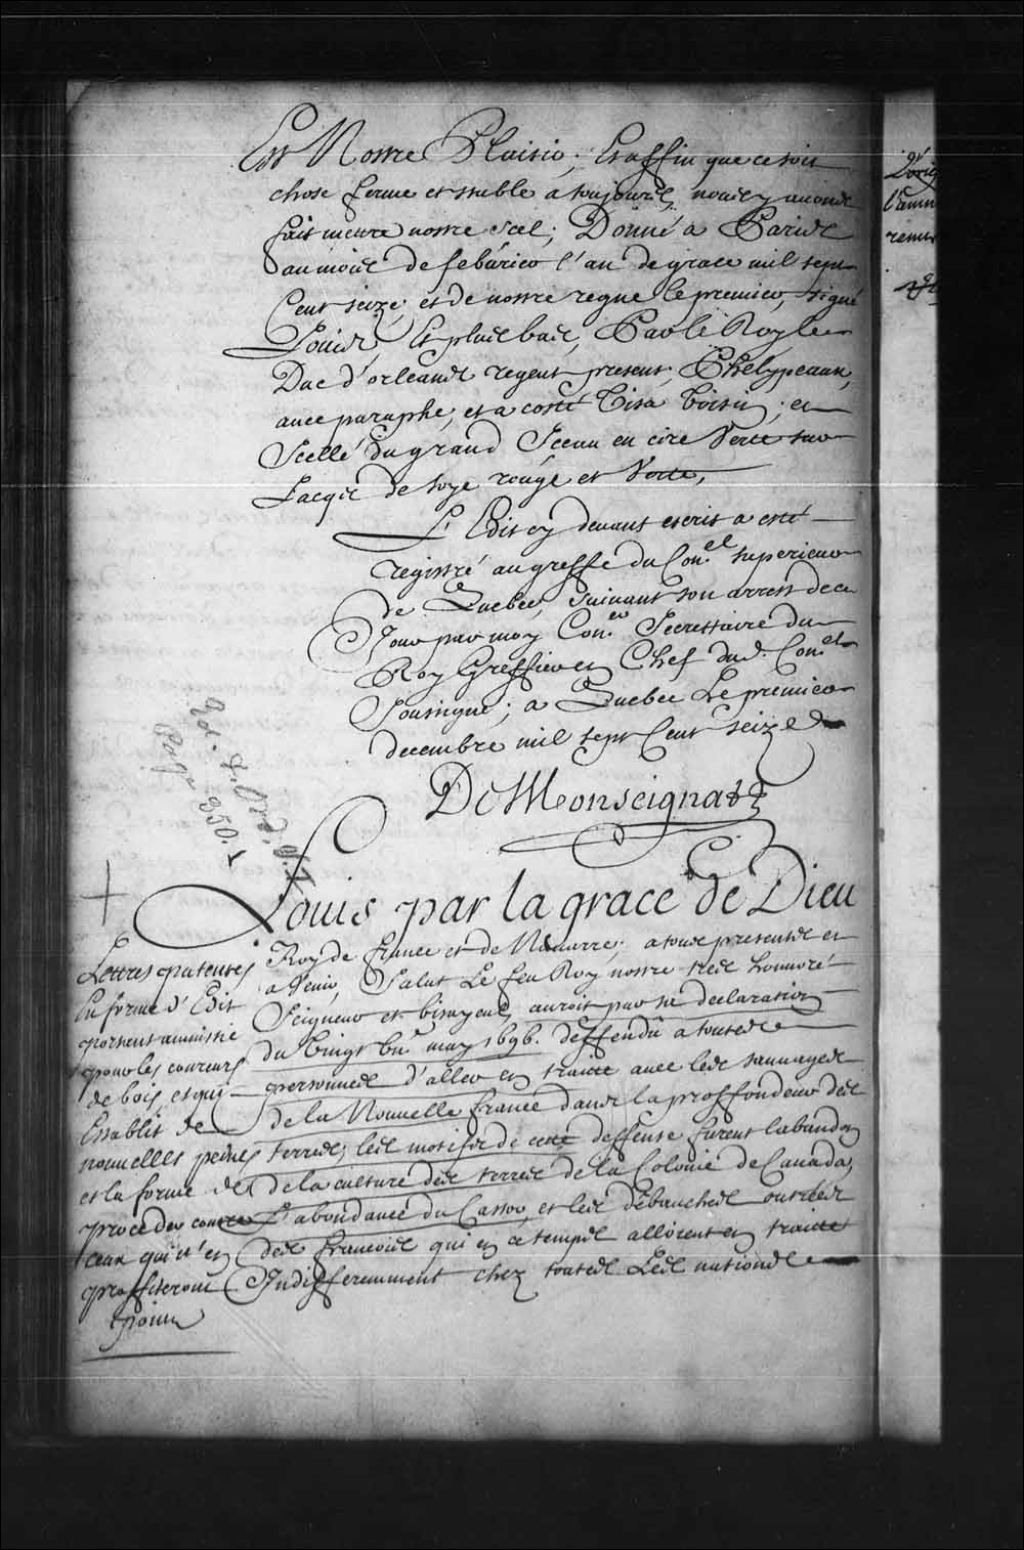 Est Nostre Plaisir; Et affin que ce soit
chose ferme et stable a toujours, nous y avons
fait mettre nostre scel; Donné a Paris
au mois de febvrier l'an de grace mil sept
Cent seize, et de nostre regne le premier, signé
Louis, Et plus bas, Par le Roy le
Duc d'orleans regent present, Phelypeaux,
avec paraphe, et a costé Visa Voisin; et
Scellé du grand Sceau en cire Verte sur
Lacqs de soye rouge et Verte,
L'Edit cy devant escrit a esté
registré au greffe du Con.el superieur
de Quebec, suivant son arrest de ce
Jour par moy Con.er Secretaire du
Roy Greffier en Chef dud. Con.el
Soussigné; a Quebec Le premier
decembre mil sept Cent seize
DeMonseignat
Vol. 1. Ord.
Page 350.
Louis par la grace de Dieu
Roy de france et de Navarre; a tous presents et
a Venir, Salut Le feu Roy nostre tres honnoré
Seigneur et bisayeul, auroit par sa declaration
du Vingt Un may 1696. deffendu a toutes
personnes d'aller en traite avec les sauvages
de la Nouvelle france dans la proffondeur des
terres, les motifs de cette deffense furent l'abandon
de la culture des terres de la Colonie de Canada,
l'abondance du Castor, et les débauches outrées
des francois qui en ce temps alloient en traite
Indifferemment chez toutes Les nations
Lettres patentes
En forme d'Edit
portant amnistie
pour les coureurs
de bois, et qui
Establit de
nouvelles peines
et la forme de
proceder contre
ceux qui n'en
proffiteront
point